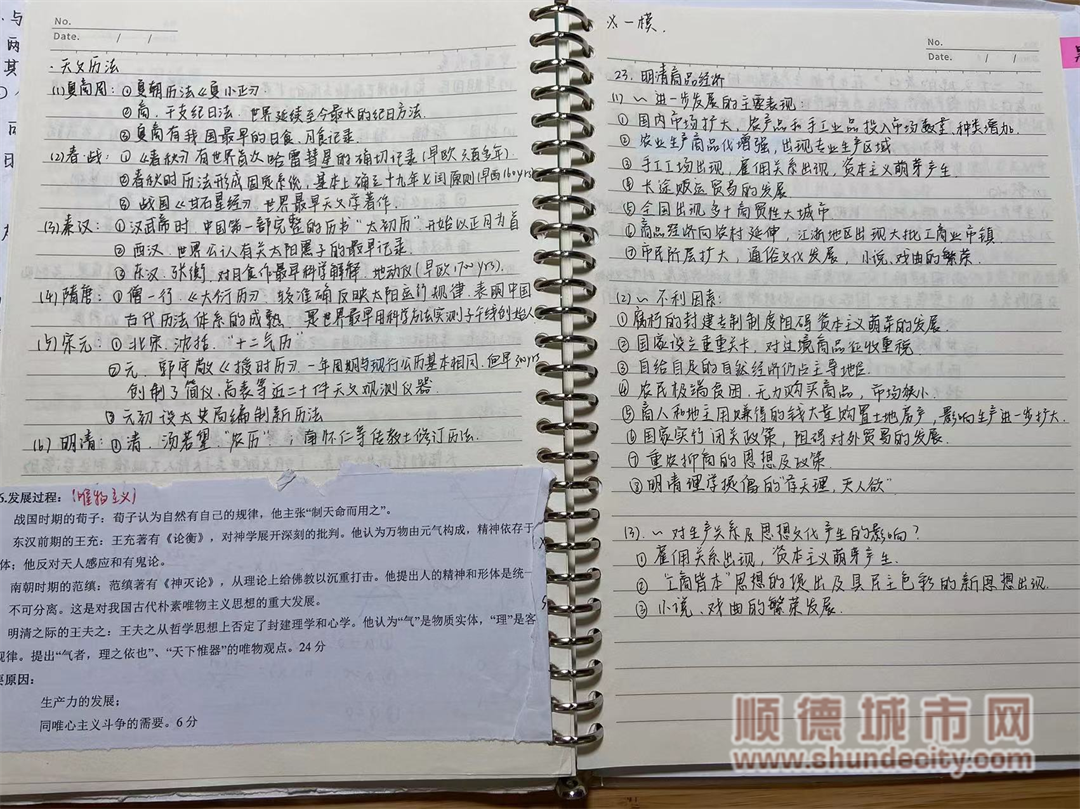 No.
Date. / /
·天文历法
(1)夏商周:①夏朝历法《夏小正》
②商.干支纪日法.世界延续至今最长的纪日方法.
③夏商有我国最早的日食,月食记录.
(2)春.战:①《春秋》有世界首次哈雷彗星的确切记录(早欧六百多年).
②春秋时历法形成固定系统,基本上确立十九年七闰原则(早西160yrs)
③战国《甘石星经》世界最早天文学著作.
(3)秦汉:①汉武帝时.中国第一部完整的历书“太初历”开始以正月为首
②西汉.世界公认有关太阳黑子的最早记录.
③东汉.张衡.对月食作最早科学解释.地动仪(早欧1700yrs).
(4)隋唐:①僧一行.《大衍历》.较准确反映太阳运行规律.表明中国
古代历法体系的成熟.是世界最早用科学方法实测子午线创始人
(5)宋元:①北宋.沈括.“十二气历”
②元.郭守敬《授时历》一年周期与现行公历基本相同.但早300yrs
创制了简仪.高表等近二十件天文观测仪器.
③元初设太史局编制新历法
(6)明清:①清.汤若望“农历”;南怀仁等传教士修订历法.
6.发展过程:(唯物主义)
战国时期的荀子:荀子认为自然有自己的规律,他主张“制天命而用之”。
东汉前期的王充:王充著有《论衡》,对神学展开深刻的批判。他认为万物由元气构成,精神依存于
体;他反对天人感应和有鬼论。
南朝时期的范缜:范缜著有《神灭论》,从理论上给佛教以沉重打击。他提出人的精神和形体是统一
不可分离。这是对我国古代朴素唯物主义思想的重大发展。
明清之际的王夫之:王夫之从哲学思想上否定了封建理学和心学。他认为“气”是物质实体,“理”是客
规律。提出“气者,理之依也”、“天下惟器”的唯物观点。24分
要原因:
生产力的发展;
同唯心主义斗争的需要。6分
※一模.
No.
Date. / /
23.明清商品经济
(1)~进一步发展的主要表现:
①国内市场扩大,农产品和手工业品投入市场数量,种类增加.
②农业生产商品化增强,出现专业生产区域
③手工工场出现,雇佣关系出现,资本主义萌芽产生.
④长途贩运贸易的发展.
⑤全国出现多个商贸性大城市
⑥商品经济向农村延伸,江浙地区出现大批工商业市镇.
⑦市民阶层扩大,通俗文化发展.小说、戏曲的繁荣.
(2)~不利因素:
①腐朽的封建专制制度阻碍资本主义萌芽的发展.
②国家设立重重关卡,对过境商品征收重税.
③自给自足的自然经济仍占主导地位.
④农民极端贫困.无力购买商品,市场狭小.
⑤商人和地主用赚得的钱大量购置土地房产,影响生产进一步扩大.
⑥国家实行闭关政策,阻碍对外贸易的发展.
⑦重农抑商的思想及政策.
⑧明清理学提倡的“存天理,灭人欲”.
(3)~对生产关系及思想文化产生的影响?
①雇佣关系出现,资本主义萌芽产生.
②“工商皆本”思想的提出及具民主色彩的新思想出现.
③小说、戏曲的繁荣发展.
顺德城市网
www.shundecity.com